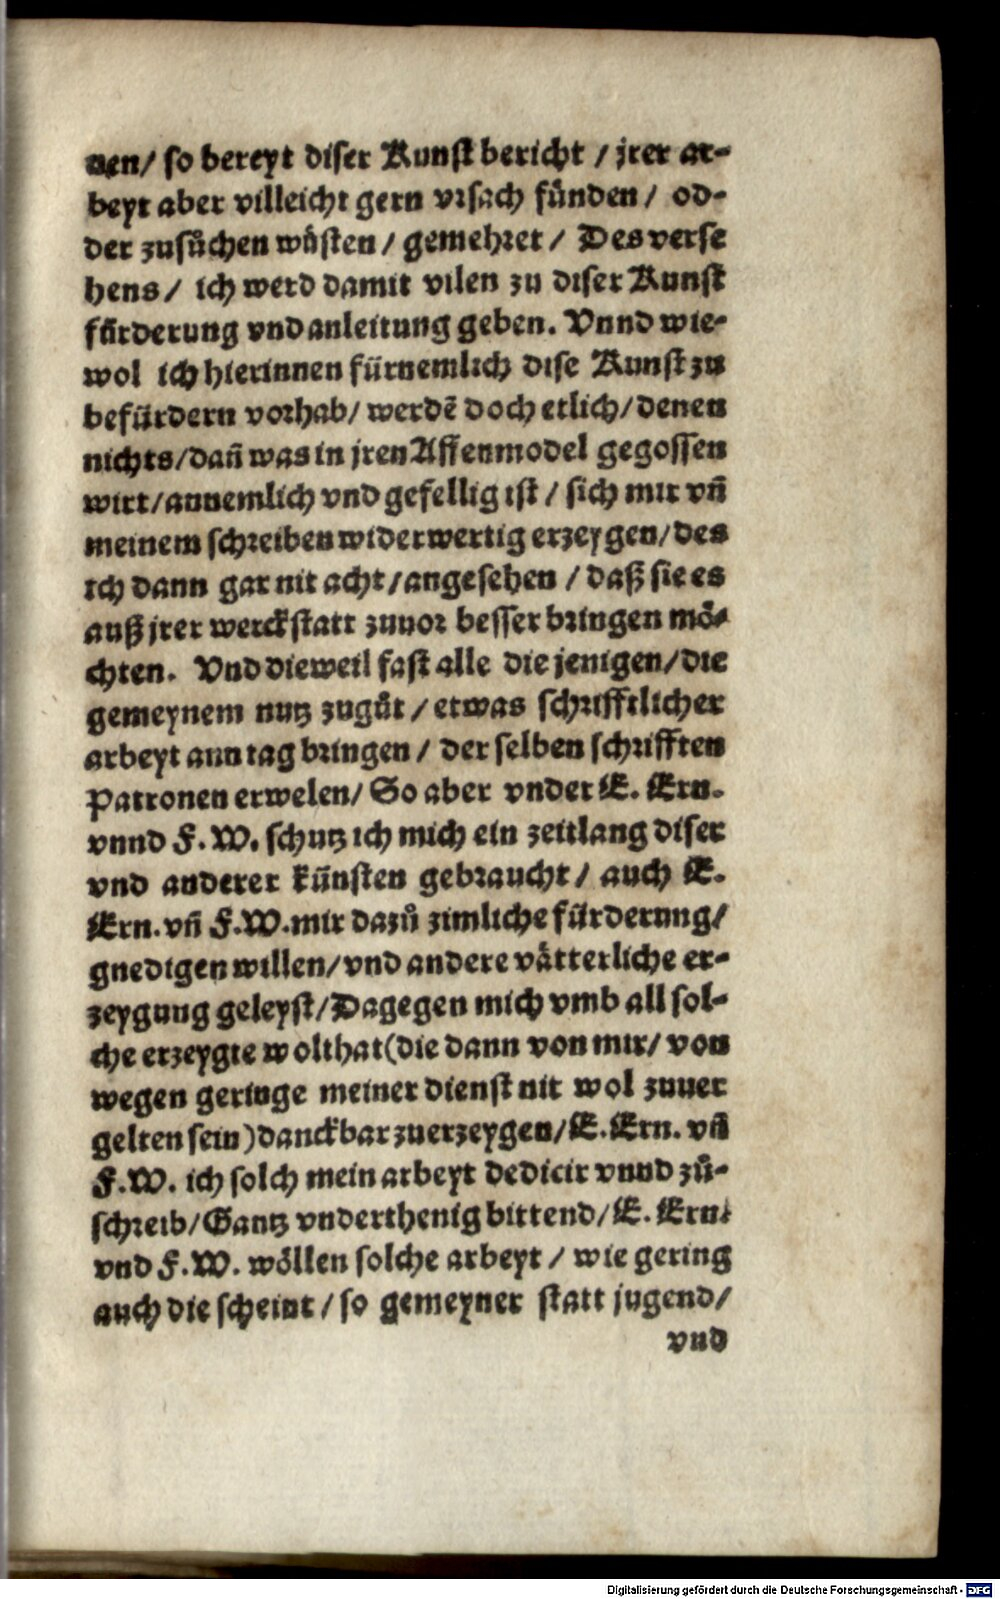 nen/ so bereyt diser Kunst bericht / jrer ar-
beyt aber villeicht gern vrsach fünden / od-
der zusůchen wůsten / gemehret / Des verse
hens / ich werd damit vilen zu diser Kunst
fürderung vnd anleitung geben. Vnnd wie-
wol ich hierinnen fürnemlich dise Kunst zu
befürdern vorhab/ werdẽ doch etlich/ denen
nichts/dañ was in jren Affenmodel gegossen
wirt/annemlich vnd gefellig ist / sich mir vñ
meinem schreiben widerwertig erzeygen/des
ich dann gar nit acht/angesehen / daß sie es
auß jrer werckstatt zuuor besser bringen mö-
chten. Vnd dieweil fast alle die jenigen/die
gemeynem nutz zugůt / etwas schrifftlicher
arbeyt ann tag bringen / der selben schrifften
Patronen erwelen/ So aber vnder E. Ern.
vnnd F. W. schutz ich mich ein zeitlang diser
vnd anderer künsten gebraucht / auch E.
Ern. vñ F.W. mir dazů zimliche fürderung/
gnedigen willen/vnd andere vätterliche er-
zeygung geleyst/Dagegen mich vmb all sol-
che erzeygte wolthat(die dann von mir/ von
wegen geringe meiner dienst nit wol zuuer
gelten sein)danckbar zuerzeygen/E. Ern. vñ
F.W. ich solch mein arbeyt dedicir vnnd zů-
schreib/Gantz vnderthenig bittend/E. Ern.
vnd F. W. wöllen solche arbeyt / wie gering
auch die scheint / so gemeyner statt jugend/
vnd
Digitalisierung gefördert durch die Deutsche Forschungsgemeinschaft - DFG